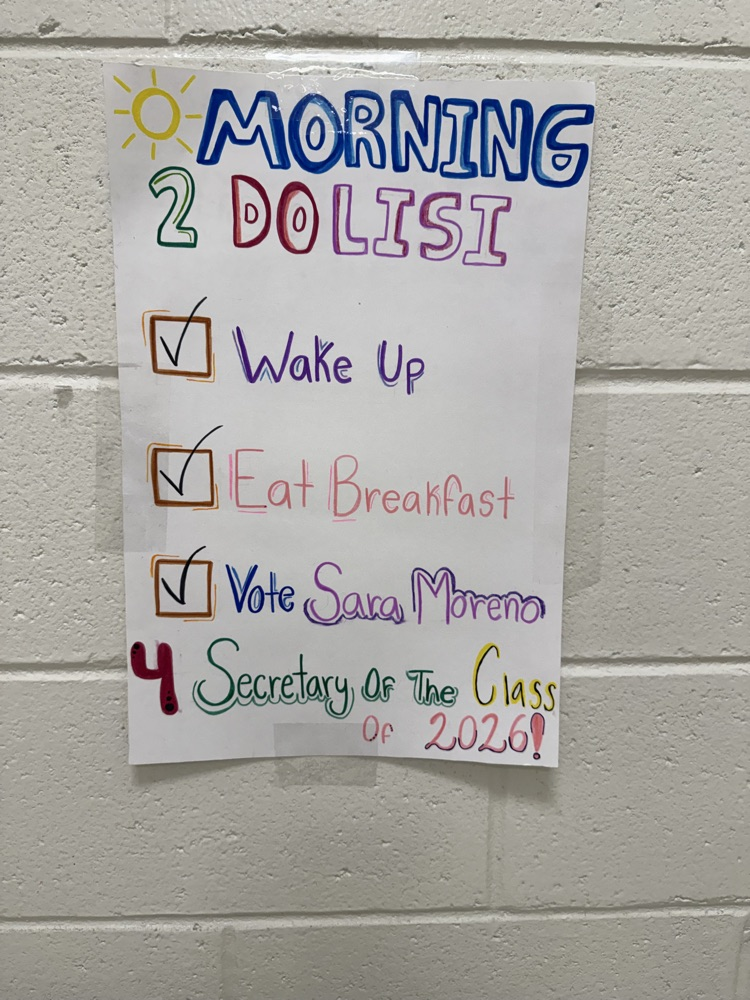 MORNING
2 DO LISI
Wake Up
Eat Breakfast
Vote Sara Moreno
4 Secretary Of The Class
Of 2026!